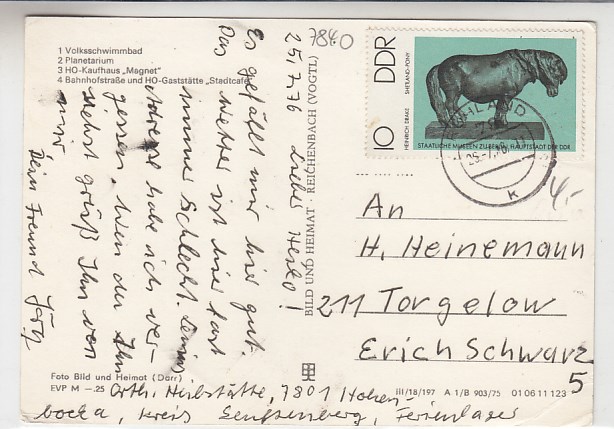 1 Volksschwimmbad
2 Planetarium
3 HO-Kaufhaus „Magnet"
4 Bahnhofstraße und HO-Gaststätte „Stadtcafé"
7840
25.7.76 Lieber Heiko!
Es gefällt mir hier gut.
Das Wetter ist hier fast
immer Schlecht.
Adresse habe ich ver-
gessen. Wenn du Ihn
siehst grüß Ihn von
mir
Dein Freund Jörg
BILD UND HEIMAT · REICHENBACH (VOGTL)
DDR
10
HEINRICH DRAKE
SHETLAND-PONY
STAATLICHE MUSEEN ZU BERLIN, HAUPTSTADT DER DDR
RUHLAND
k
4,-
An
H. Heinemann
211 Torgelow
Erich Schwarz
5
Foto Bild und Heimat (Darr)
EVP M —.25
III/18/197 A 1/B 903/75 01 06 11 123
7801 Hohen-
bocka, Kreis Senftenberg, Ferienlager